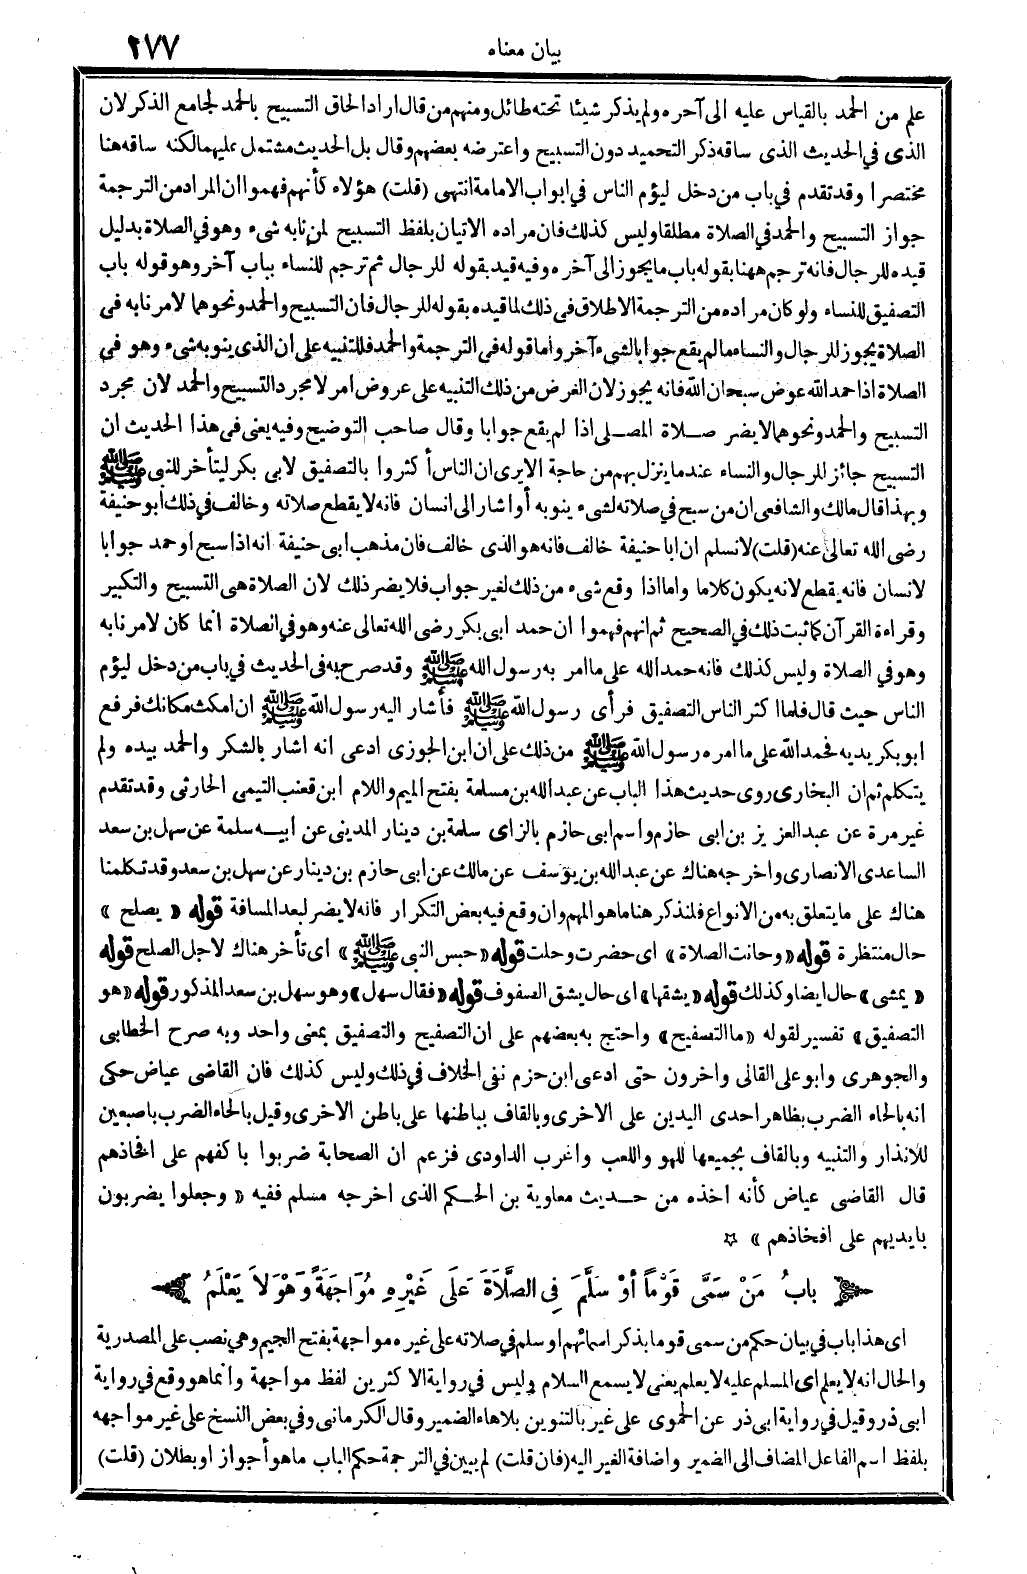 بيان معناه
٢٧٧
علم من الحمد بالقياس عليه الى آخره ولم يذكر شيئا تحته طائل ومنهم من قال اراد الحاق التسبيح بالحمد لجامع الذكر لان
الذى في الحديث الذى ساقه ذكر التحميد دون التسبيح واعترضه بعضهم وقال بل الحديث مشتمل عليهما لكنه ساقه هنا
مختصرا وقد تقدم في باب من دخل ليؤم الناس في ابواب الامامة انتهى (قلت) هؤلاء كأنهم فهموا ان المراد من الترجمة
جواز التسبيح والحمد في الصلاة مطلقا وليس كذلك فان مراده الاتيان بلفظ التسبيح لمن نابه شىء وهو في الصلاة بدليل
قيده للرجال فانه ترجم ههنا بقوله باب ما يجوز الى آخره وفيه قيد بقوله للرجال ثم ترجم للنساء بباب آخر وهو قوله باب
التصفيق للنساء ولو كان مراده من الترجمة الاطلاق فى ذلك لما قيده بقوله للرجال فان التسبيح والحمد ونحوهما لامر نابه فى
الصلاة يجوز للرجال والنساء ما لم يقع جوابا لشىء آخر واما قوله فى الترجمة والحمد فللتنبيه على ان الذى ينوبه شىء وهو في
الصلاة اذا حمد الله عوض سبحان الله فانه يجوز لان الغرض من ذلك التنبيه على عروض امر لا مجرد التسبيح والحمد لان مجرد
التسبيح والحمد ونحوهما لا يضر صلاة المصلى اذا لم يقع جوابا وقال صاحب التوضيح وفيه يعنى فى هذا الحديث ان
التسبيح جائز للرجال والنساء عند ما ينزل بهم من حاجة الا يرى ان الناس أكثروا بالتصفيق لابى بكر ليتأخر للنبى ﷺ
وبهذا قال مالك والشافعى ان من سبح في صلاته لشىء ينوبه أو اشار الى انسان فانه لا يقطع صلاته وخالف في ذلك أبو حنيفة
رضى الله تعالى عنه (قلت) لا نسلم ان ابا حنيفة خالف فانه هو الذى خالف فان مذهب ابى حنيفة انه اذا سبح او حمد جوابا
لانسان فانه يقطع لانه يكون كلاما واما اذا وقع شىء من ذلك لغير جواب فلا يضر ذلك لان الصلاة هى التسبيح والتكبير
وقراءة القرآن كما ثبت ذلك في الصحيح ثم انهم فهموا ان حمد ابى بكر رضى الله تعالى عنه وهو في الصلاة انما كان لامر نابه
وهو في الصلاة وليس كذلك فانه حمد الله على ما امر به رسول الله ﷺ وقد صرح به فى الحديث في باب من دخل ليؤم
الناس حيث قال فلما اكثر الناس التصفيق فرأى رسول الله ﷺ فأشار اليه رسول الله ﷺ ان امكث مكانك فرفع
ابو بكر يديه فحمد الله على ما امره رسول الله ﷺ من ذلك على ان ابن الجوزى ادعى انه اشار بالشكر والحمد بيده ولم
يتكلم ثم ان البخارى روى حديث هذا الباب عن عبد الله بن مسلمة بفتح الميم واللام ابن قعنب التيمى الحارثى وقد تقدم
غير مرة عن عبد العزيز بن ابى حازم واسم ابى حازم بالزاى سلمة بن دينار المدينى عن ابيه سلمة عن سهل بن سعد
الساعدى الانصارى واخرجه هناك عن عبد الله بن يوسف عن مالك عن ابى حازم بن دينار عن سهل بن سعد وقد تكلمنا
هناك على ما يتعلق به من الانواع فلنذكر هنا ما هو المهم وان وقع فيه بعض التكرار فانه لا يضر لبعد المسافة قوله «يصلح»
حال منتظرة قوله «وحانت الصلاة» اى حضرت وحلت قوله «حبس النبى ﷺ» اى تأخر هناك لاجل الصلح قوله
«يمشى» حال ايضا وكذلك قوله «يشقها» اى حال يشق الصفوف قوله «فقال سهل» وهو سهل بن سعد المذكور قوله «هو
التصفيق» تفسير لقوله «ما التصفيح» واحتج به بعضهم على ان التصفيح والتصفيق بمعنى واحد وبه صرح الخطابى
والجوهرى وابو على القالى واخرون حتى ادعى ابن حزم نفى الخلاف في ذلك وليس كذلك فان القاضى عياض حكى
انه بالحاء الضرب بظاهر احدى اليدين على الاخرى وبالقاف بباطنها على باطن الاخرى وقيل بالحاء الضرب باصبعين
للانذار والتنبيه وبالقاف بجميعها للهو واللعب واغرب الداودى فزعم ان الصحابة ضربوا باكفهم على افخاذهم
قال القاضى عياض كأنه اخذه من حديث معاوية بن الحكم الذى اخرجه مسلم ففيه «وجعلوا يضربون
بايديهم على افخاذهم»
بابُ مَنْ سَمَّى قَوْمًا أَوْ سَلَّمَ فِى الصَّلاَةِ عَلَى غَيْرِهِ مُوَاجَهَةً وَهُوَ لاَ يَعْلَمُ
اى هذا باب في بيان حكم من سمى قوما بذكر اسمائهم او سلم في صلاته على غيره مواجهة بفتح الجيم وهي نصب على المصدرية
والحال انه لا يعلم اى المسلم عليه لا يعلم يعنى لا يسمع السلام وليس في رواية الاكثرين لفظ مواجهة وانما هو وقع في رواية
ابى ذر وقيل في رواية ابى ذر عن الحموى على غير بالتنوين بلا هاء الضمير وقال الكرمانى وفي بعض النسخ على غير مواجهه
بلفظ اسم الفاعل المضاف الى الضمير واضافة الغير اليه (فان قلت) لم يبين في الترجمة حكم الباب ما هو أجواز او بطلان (قلت)